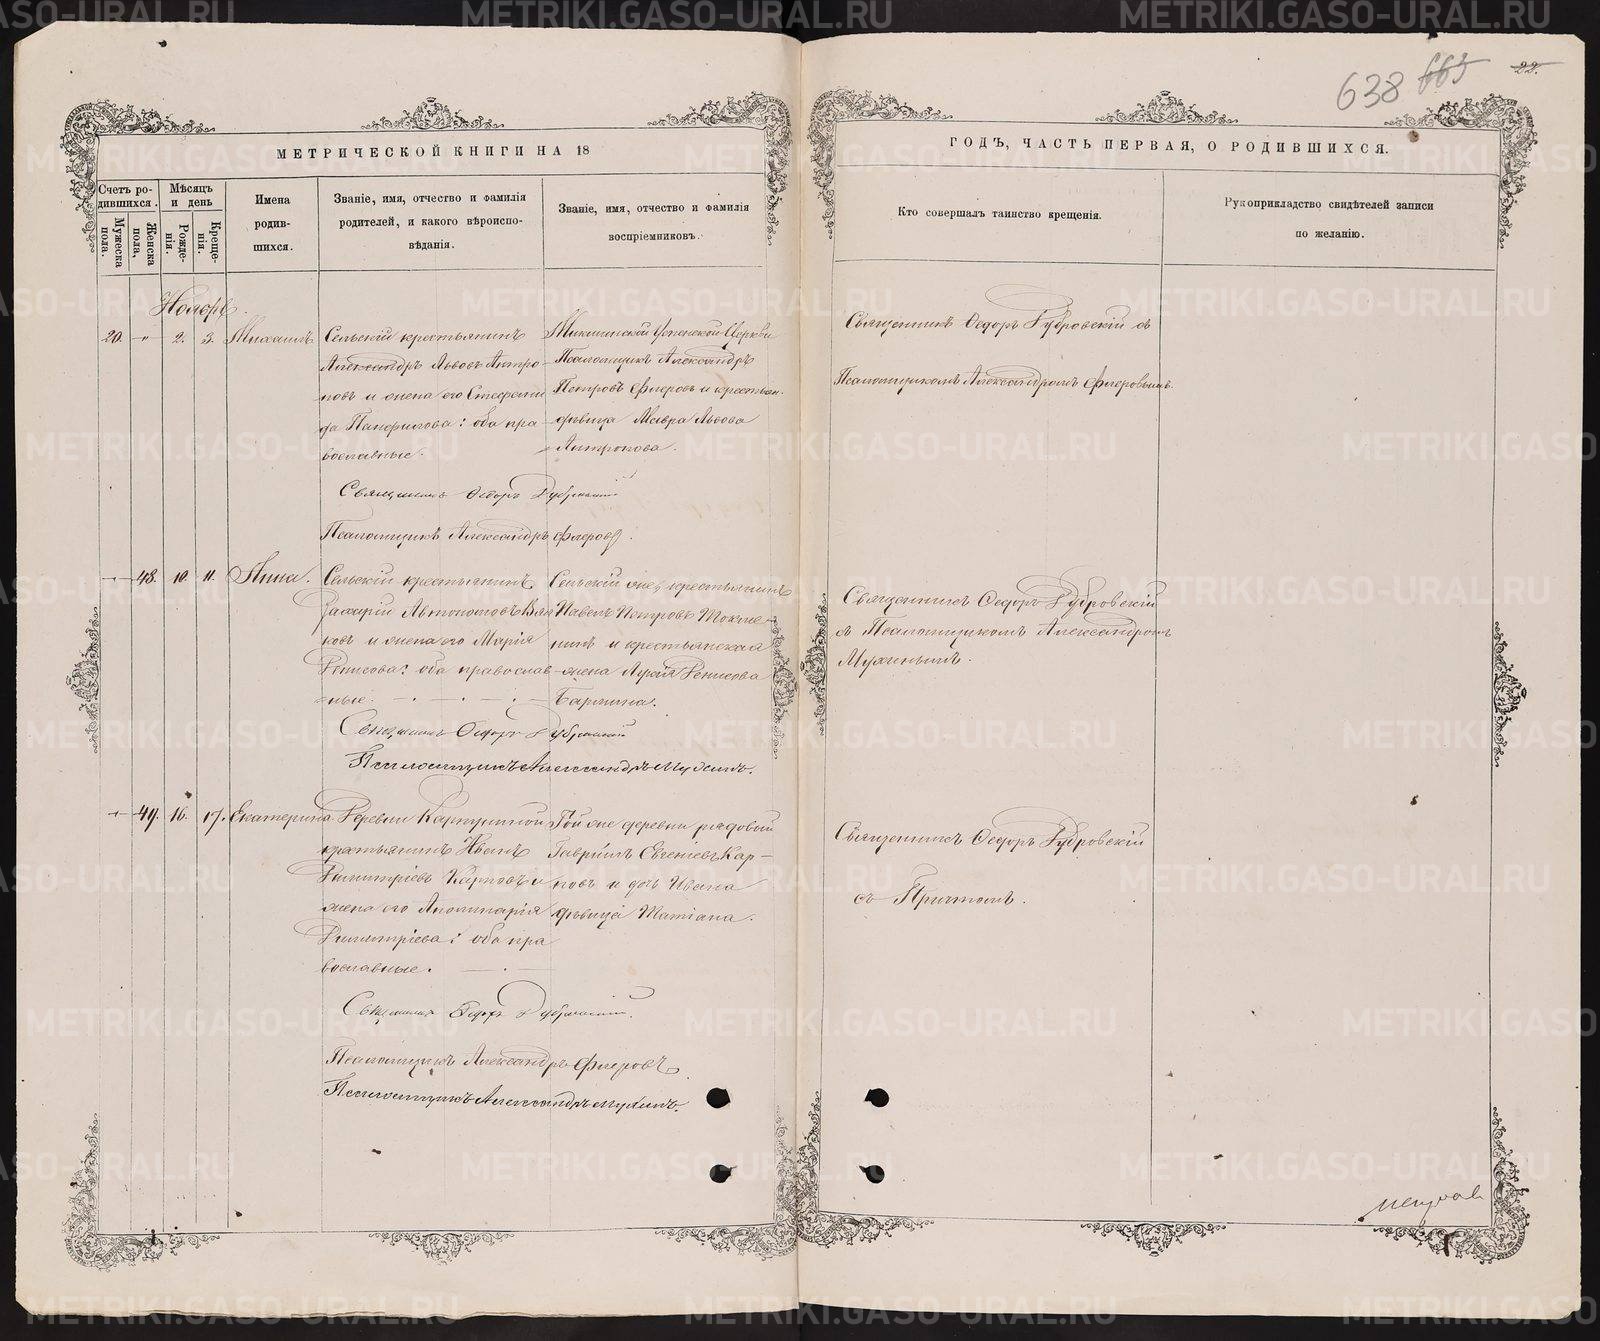 638 663 22.
МЕТРИЧЕСКОЙ КНИГИ НА 18
Счетъ родившихся.
Мужеска пола.
Женска пола,
Мѣсяцъ и день
Рожденія.
Крещенія.
Имена родившихся.
Званіе, имя, отчество и фамилія
родителей, и какого вѣроиспо-
вѣданія.
Званіе, имя, отчество и фамилія
воспріемниковъ.
Ноябрь.
20. „ 2. 3. Михаилъ
Сельскій крестьянинъ
Александръ Львовъ Антро
повъ и жена его Стефани
да Панфилова: оба пра
вославные.
Успенской Церкви
Псаломщикъ Александръ
Петровъ Флеровъ и крестьян.
дѣвица Мавра Львова
Антропова.
Священникъ Ѳедоръ Дубровскій
Псаломщикъ Александръ Флеровъ.
48. 10. 11. Анна.
Сельскій крестьянинъ
Захарій Автономовъ
ковъ и жена его Марія
Денисова: оба православ
ные.
Сельскій же, крестьянинъ
Павелъ Петровъ
нинъ и крестьянская
жена Денисова
Священникъ Ѳедоръ Дубровскій
Псаломщикъ Александръ Мухинъ.
49. 16. 17. Екатерина
Деревни
крестьянинъ Иванъ
Димитріевъ Карповъ и
жена его Аполинарія
Димитріева: оба пра
вославные.
Той же деревни рядовой
Гавріилъ Евгеніевъ Кар-
повъ и дочь Ивана
дѣвица Татіана.
Священникъ Ѳедоръ Дубровскій.
Псаломщикъ Александръ Флеровъ
Псаломщикъ Александръ Мухинъ.
ГОДЪ, ЧАСТЬ ПЕРВАЯ, О РОДИВШИХСЯ.
Кто совершалъ таинство крещенія.
Рукоприкладство свидѣтелей записи
по желанію.
Священникъ Ѳедоръ Дубровскій съ
Псаломщикомъ Александромъ Флеровымъ.
Священникъ Ѳедоръ Дубровскій
съ Псаломщикомъ Александромъ
Мухинымъ.
Священникъ Ѳедоръ Дубровскій
съ Причтомъ.
METRIKI.GASO-URAL.RU